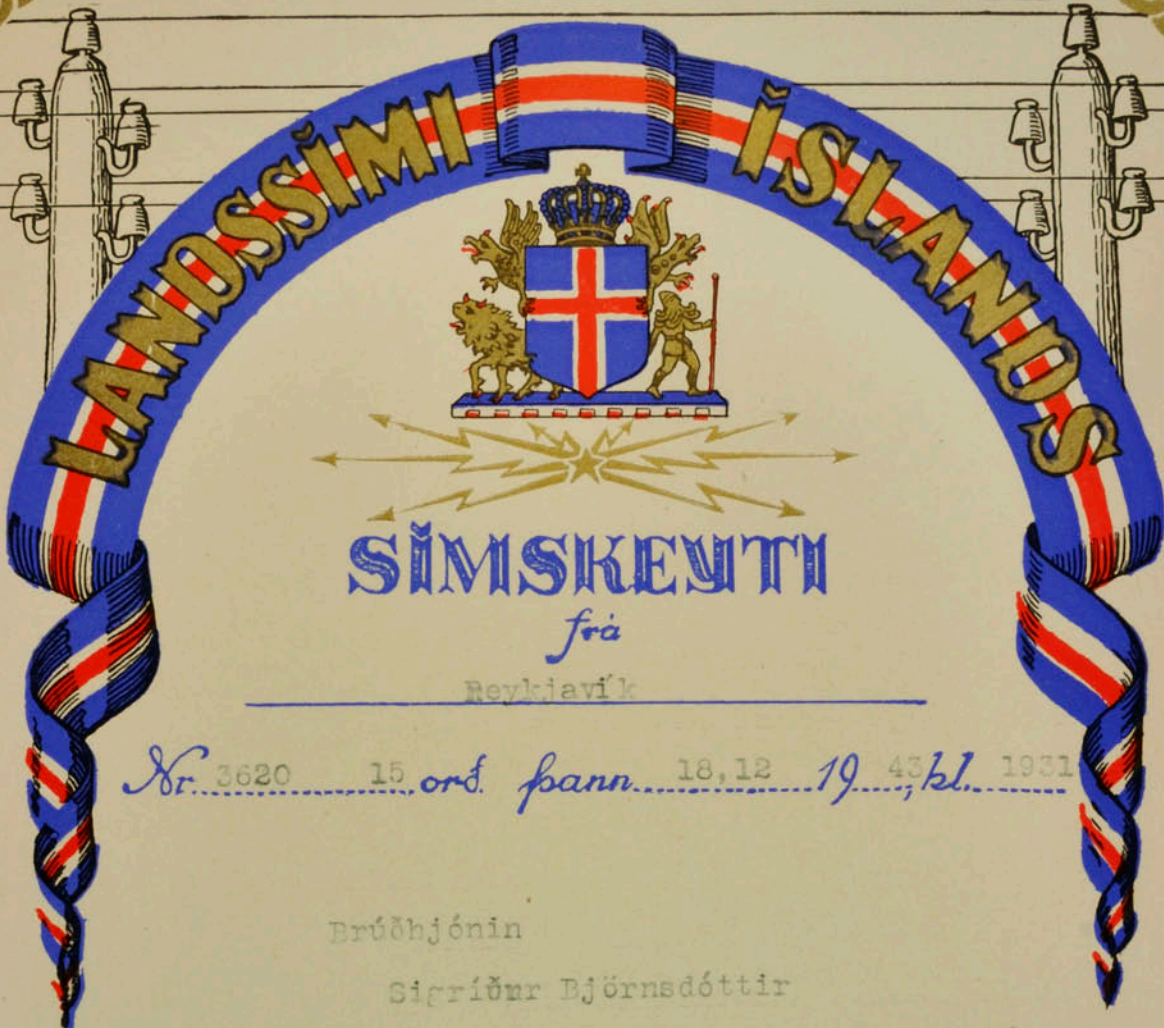 LANDSSÍMI ÍSLANDS
SÍMSKEYTI
frá
Reykjavík
Nr. 3620 15 orð. þann 18,12 19 43, kl. 1931
Brúðhjónin
Sigríður Björnsdóttir